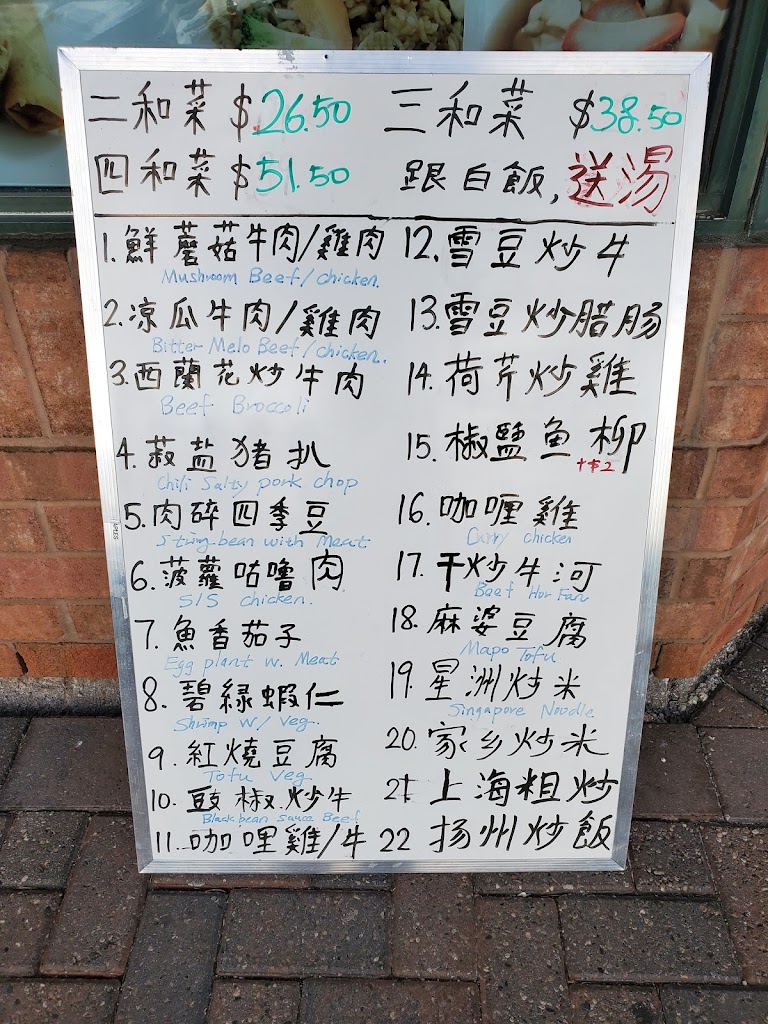 二和菜 $26.50 三和菜 $38.50
四和菜 $51.50 跟白飯,送湯
1.鮮蘑菇牛肉/雞肉
Mushroom Beef/chicken.
2.凉瓜牛肉/雞肉
Bitter Melo Beef/chicken.
3.西蘭花炒牛肉
Beef Broccoli
4.菽盐猪扒
Chili Salty pork chop
5.肉碎四季豆
String bean with Meat
6.菠蘿咕嚕肉
S/S chicken.
7.魚香茄子
Egg plant w. Meat
8.碧綠蝦仁
Shrimp w/ Veg.
9.紅燒豆腐
Tofu Veg
10.豉椒炒牛
Black bean sauce Beef
11.咖哩雞/牛
12.雪豆炒牛
13.雪豆炒腊肠
14.荷芹炒雞
15.椒鹽魚柳
+$2
16.咖喱雞
Curry chicken
17.干炒牛河
Beef Hor Fun
18.麻婆豆腐
Mapo Tofu
19.星洲炒米
Singapore Noodle
20.家乡炒米
21上海粗炒
22扬州炒飯